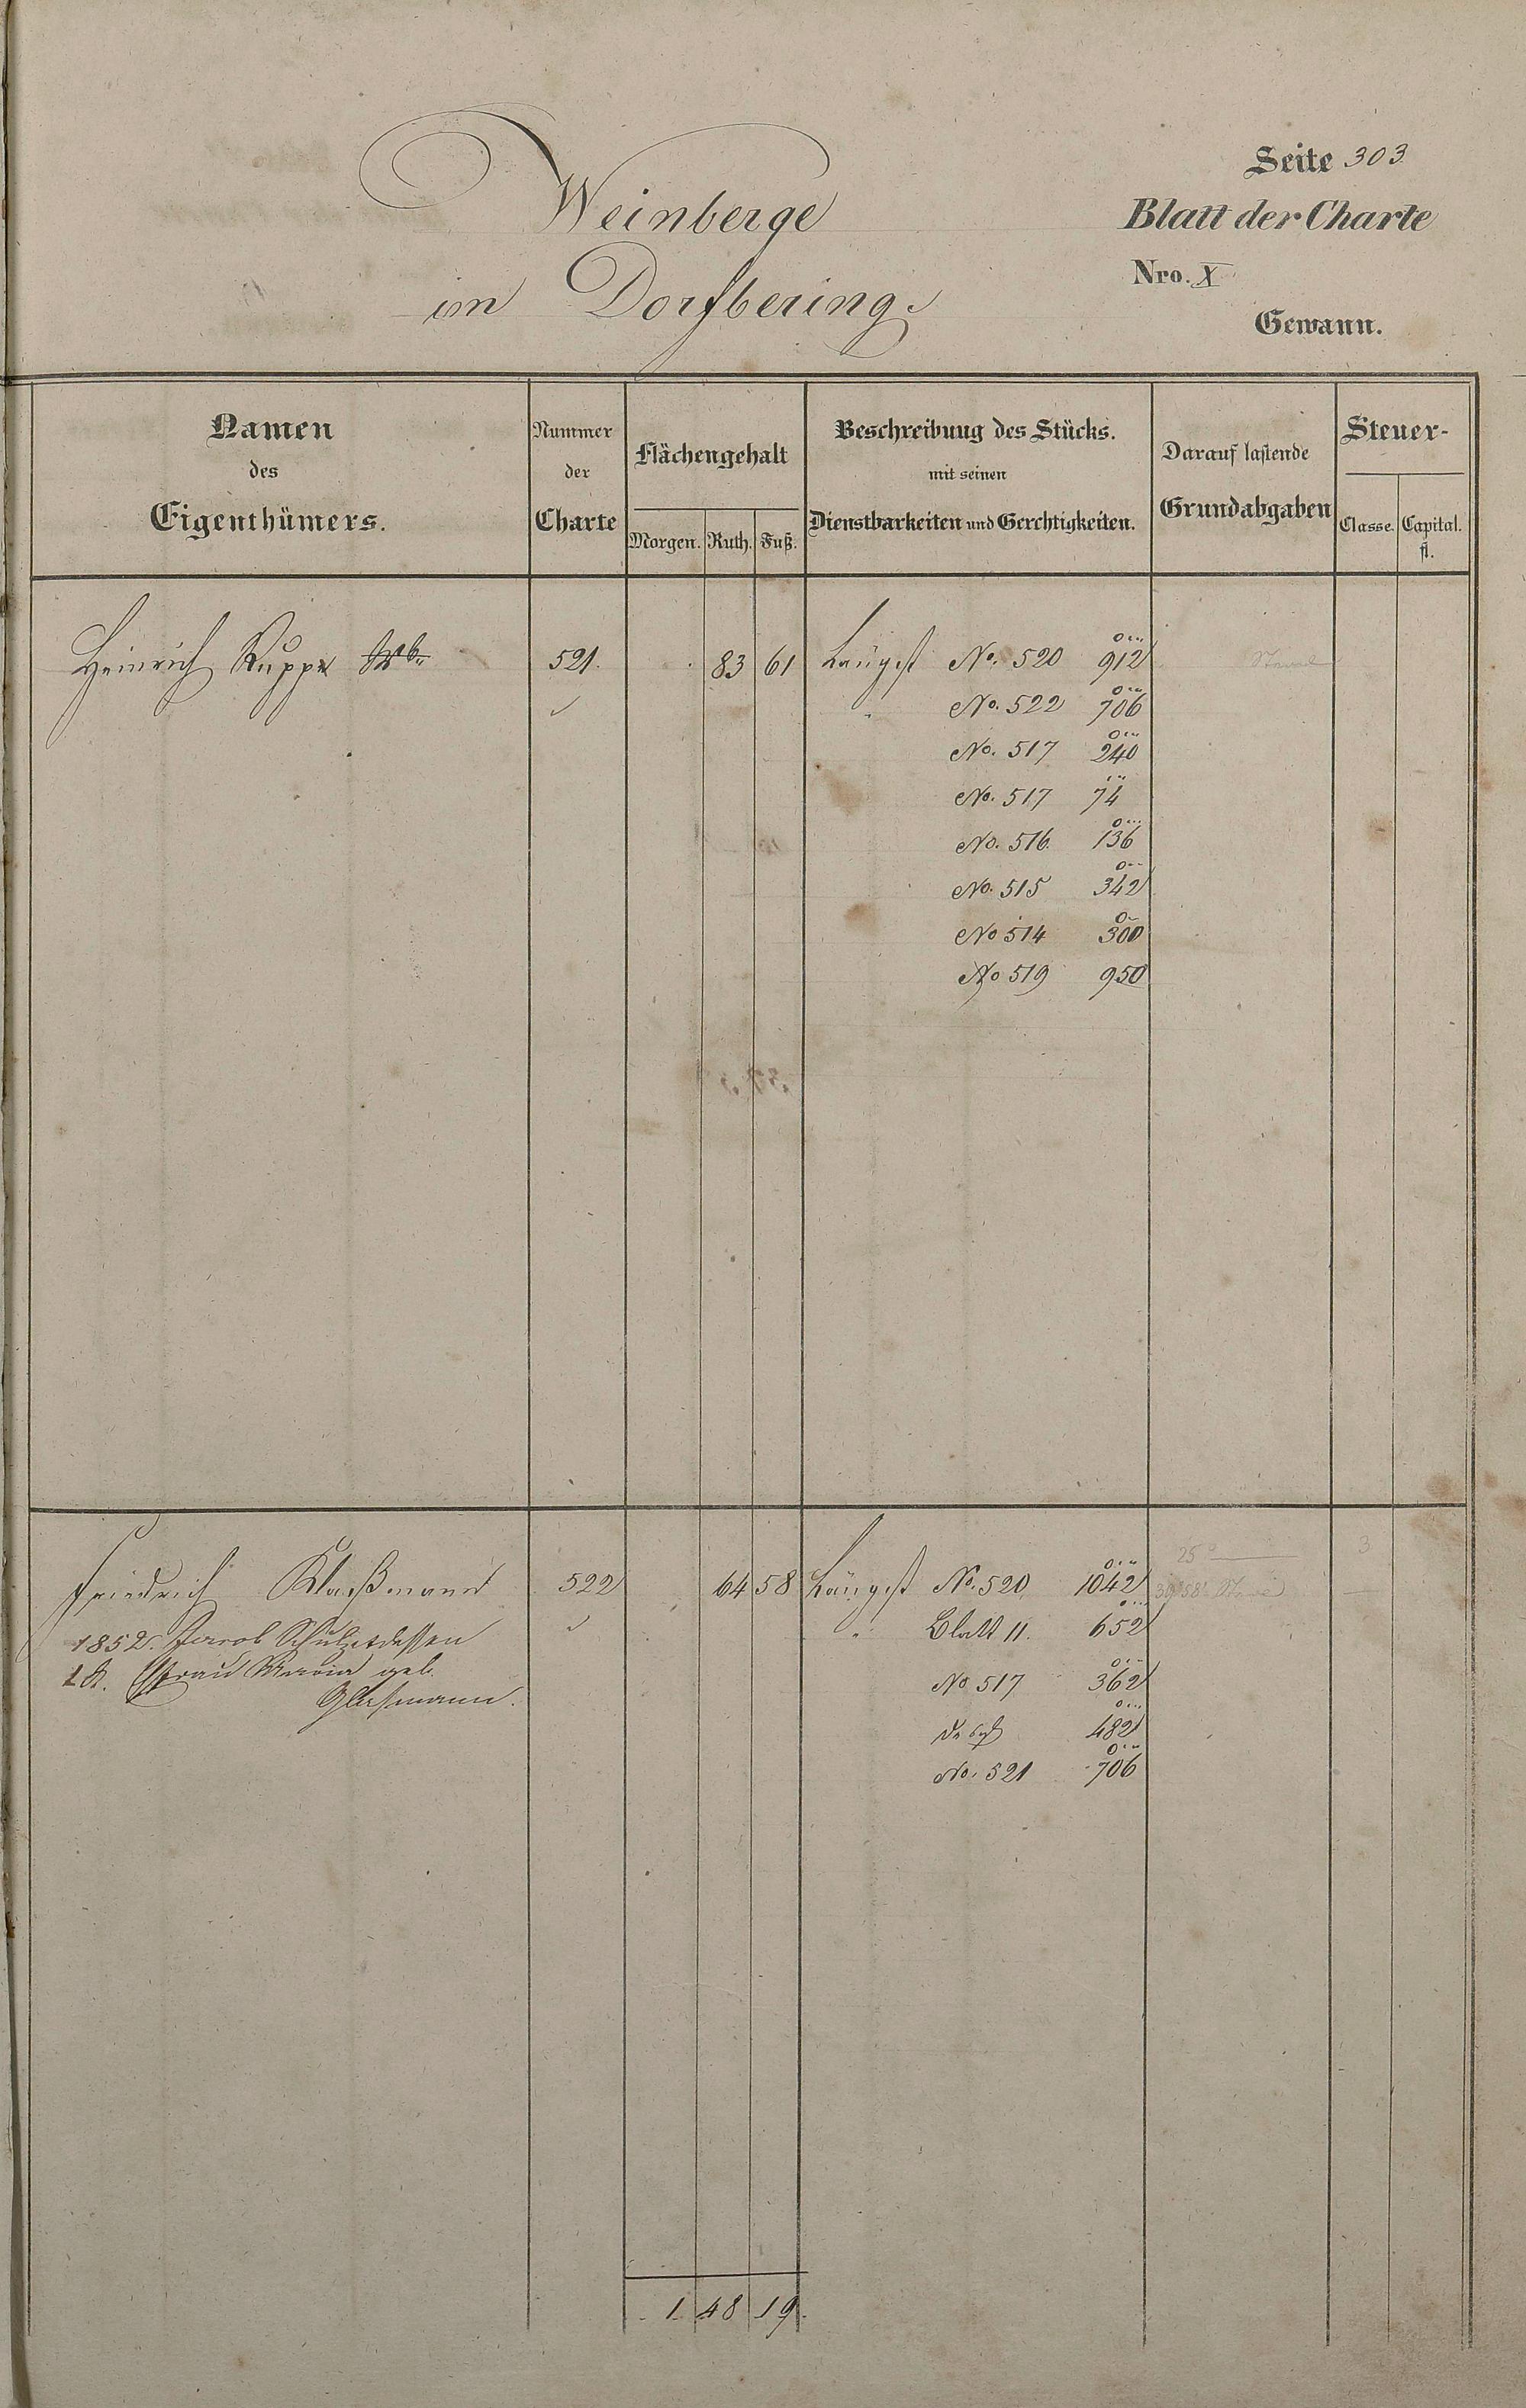 Seite 303
Weinberge
Blatt der Charte
im Dorfbering.
Nro. X
Gewann.
Namen
des
Eigenthümers.
Nummer
der
Charte
Flächengehalt
Morgen. Ruth. Fuß.
Beschreibung des Stücks.
mit seinen
Dienstbarkeiten und Gerchtigkeiten.
Darauf lastende
Grundabgaben
Steuer-
Classe. Capital.
fl.
Heinrich Ruppe 521. 83 61 Längst No. 520 912
" No. 522 706
No. 517 240
No. 517 74
No. 516. 136
No. 515 342
No 514 300
No 519 950
Friedrich Klaßmann 522 64 58 Längst No. 520 1042
1852. Jacob Schulz dessen " Blatt 11. 652
Efrau Maria geb. No 517 362
Glasmann. desgl 482
No. 521 706
25° 3
1. 48 19.